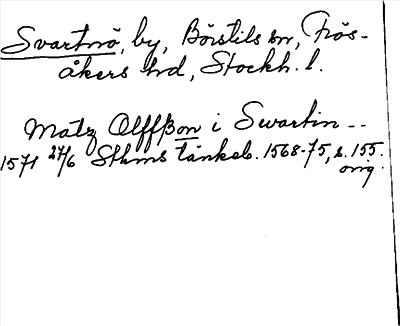 Svartnö, by, Börstils sn, Frös-
åkers hd, Stockh. l.
Matz Olffßon i Swartin--
1571 27/6 Sthms tänkeb. 1568-75, s. 155.
orig.